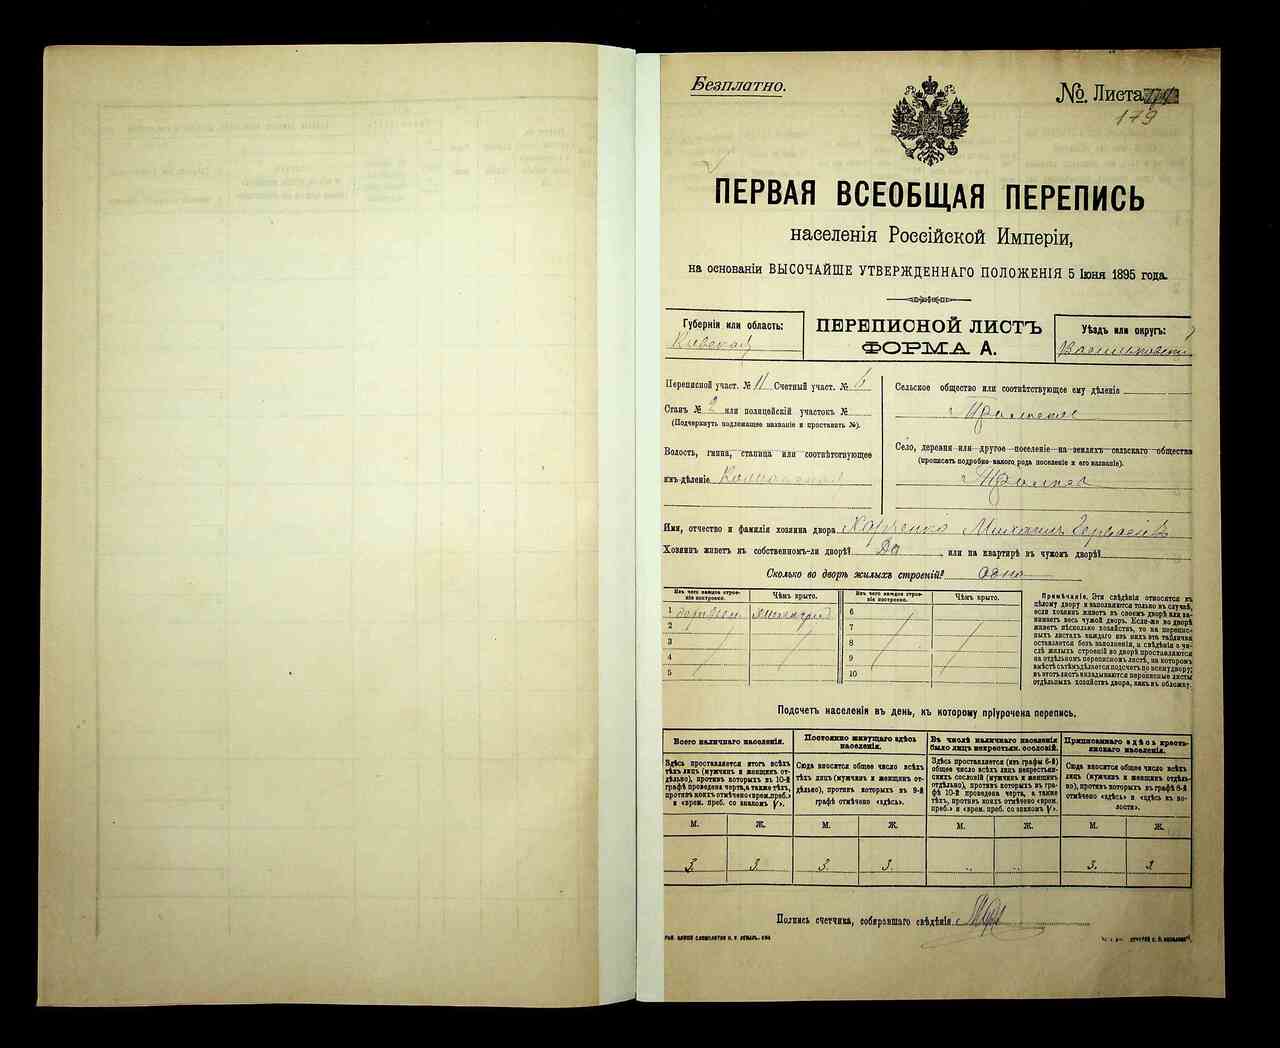 Безплатно.
№. Листа
179
ПЕРВАЯ ВСЕОБЩАЯ ПЕРЕПИСЬ
населенія Россійской Имперіи,
на основаніи ВЫСОЧАЙШЕ УТВЕРЖДЕННАГО ПОЛОЖЕНІЯ 5 Іюня 1895 года.
Губернія или область:
Кіевская
ПЕРЕПИСНОЙ ЛИСТЪ
ФОРМА А.
Уѣздъ или округъ:
Васильковскій
Переписной участ. № 11 Счетный участ. № 6
Станъ № 2 или полицейскій участокъ №
(Подчеркнуть надлежащее названіе и проставить №).
Волость, гмина, станица или соотвѣтствующее
имъ дѣленіе
Сельское общество или соотвѣтствующее ему дѣленіе
Село, деревня или другое поселеніе на земляхъ сельскаго общества
(прописать подробно какого рода поселеніе и его названіе).
Имя, отчество и фамилія хозяина двора Харченко Михаилъ
Хозяинъ живетъ въ собственномъ-ли дворѣ? Да, или на квартирѣ въ чужомъ дворѣ?
Сколько во дворѣ жилыхъ строеній? Одно
Изъ чего каждое строеніе построено.
Чѣмъ крыто.
Изъ чего каждое строеніе построено.
Чѣмъ крыто.
1
2
3
4
5
6
7
8
9
10
Примѣчаніе. Эти свѣдѣнія относятся къ
цѣлому двору и заполняются только въ случаѣ,
если хозяинъ живетъ въ своемъ дворѣ или занимаетъ
весь чужой дворъ. Если-же во дворѣ
живетъ нѣсколько хозяйствъ, то на переписныхъ
листахъ каждаго изъ нихъ эта табличка
оставляется безъ заполненія, а свѣдѣнія о числѣ
жилыхъ строеній во дворѣ проставляются
на отдѣльномъ переписномъ листѣ, на которомъ
вмѣстѣ съ тѣмъ дѣлается подсчетъ по всему двору;
въ этотъ листъ вкладываются переписные листы
отдѣльныхъ хозяйствъ двора, какъ въ обложку.
Подсчетъ населенія въ день, къ которому пріурочена перепись.
Всего наличнаго населенія.
Постоянно живущаго здѣсь
населенія.
Въ числѣ наличнаго населенія
было лицъ некрестьян. сословій.
Приписаннаго здѣсь крестьянскаго
населенія.
Здѣсь проставляется итогъ всѣхъ
тѣхъ лицъ (мужчинъ и женщинъ отдѣльно),
противъ которыхъ въ 10-й
графѣ проведена черта, а также тѣхъ,
противъ коихъ отмѣчено «врем. преб.»
и «врем. преб. со знакомъ V».
Сюда вносится общее число всѣхъ
тѣхъ лицъ (мужчинъ и женщинъ отдѣльно),
противъ которыхъ въ 9-й
графѣ отмѣчено «здѣсь».
Здѣсь проставляется (изъ графы 6-й)
общее число всѣхъ лицъ некрестьянскихъ
сословій (мужчинъ и женщинъ
отдѣльно), противъ которыхъ въ графѣ
10-й проведена черта, а также
тѣхъ, противъ коихъ отмѣчено «врем.
преб.» и «врем. преб. со знакомъ V».
Сюда вносится общее число всѣхъ
лицъ (мужчинъ и женщинъ отдѣльно),
противъ которыхъ въ графѣ 8-й
отмѣчено «здѣсь» и «здѣсь въ волости».
М. Ж. М. Ж. М. Ж. М. Ж.
3. 3. 3. 3. .. .. 3. 3
Подпись счетчика, собиравшаго свѣдѣнія